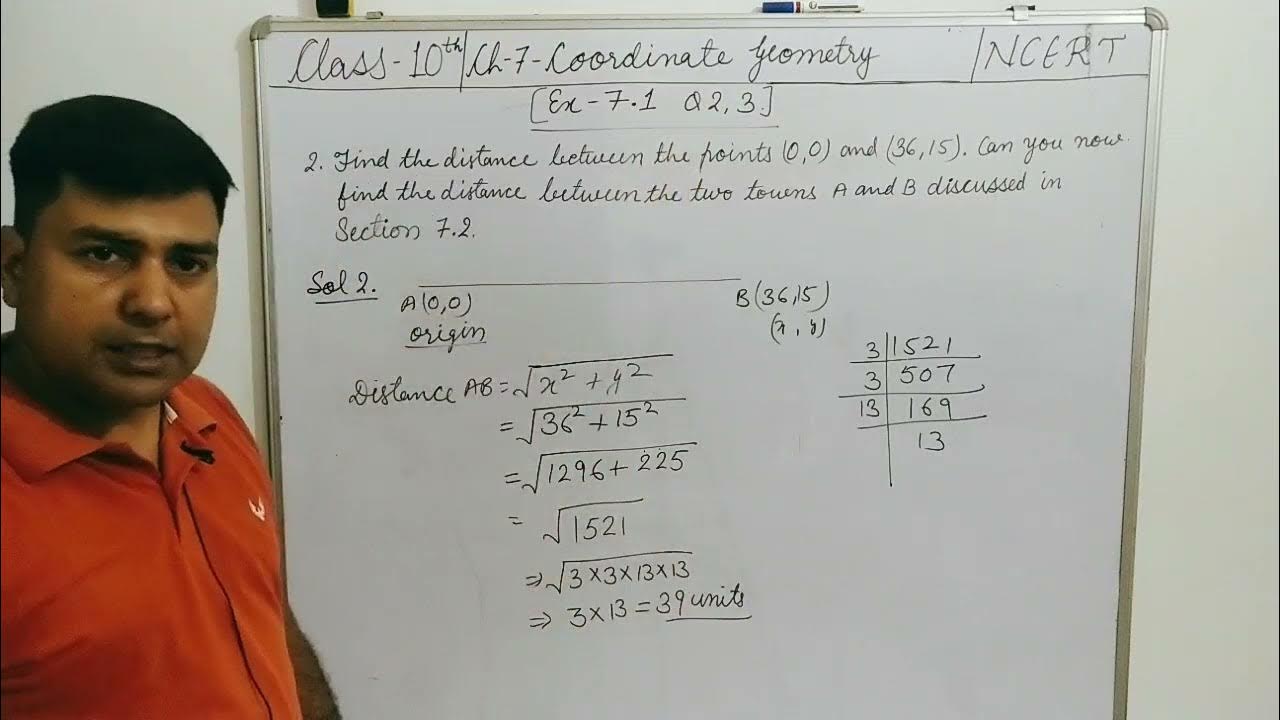 Class-10th/Ch-7-Coordinate Geometry /NCERT
[Ex-7.1 Q2,3.]
2. Find the distance between the points (0,0) and (36,15). Can you now
find the distance between the two towns A and B discussed in
Section 7.2.
Sol 2.
A(0,0) B(36,15)
origin (x, y)
Distance AB = √x² + y²
= √36² + 15²
= √1296 + 225
= √1521
⇒ √3×3×13×13
⇒ 3×13 = 39 units
3 | 1521
3 | 507
13 | 169
| 13